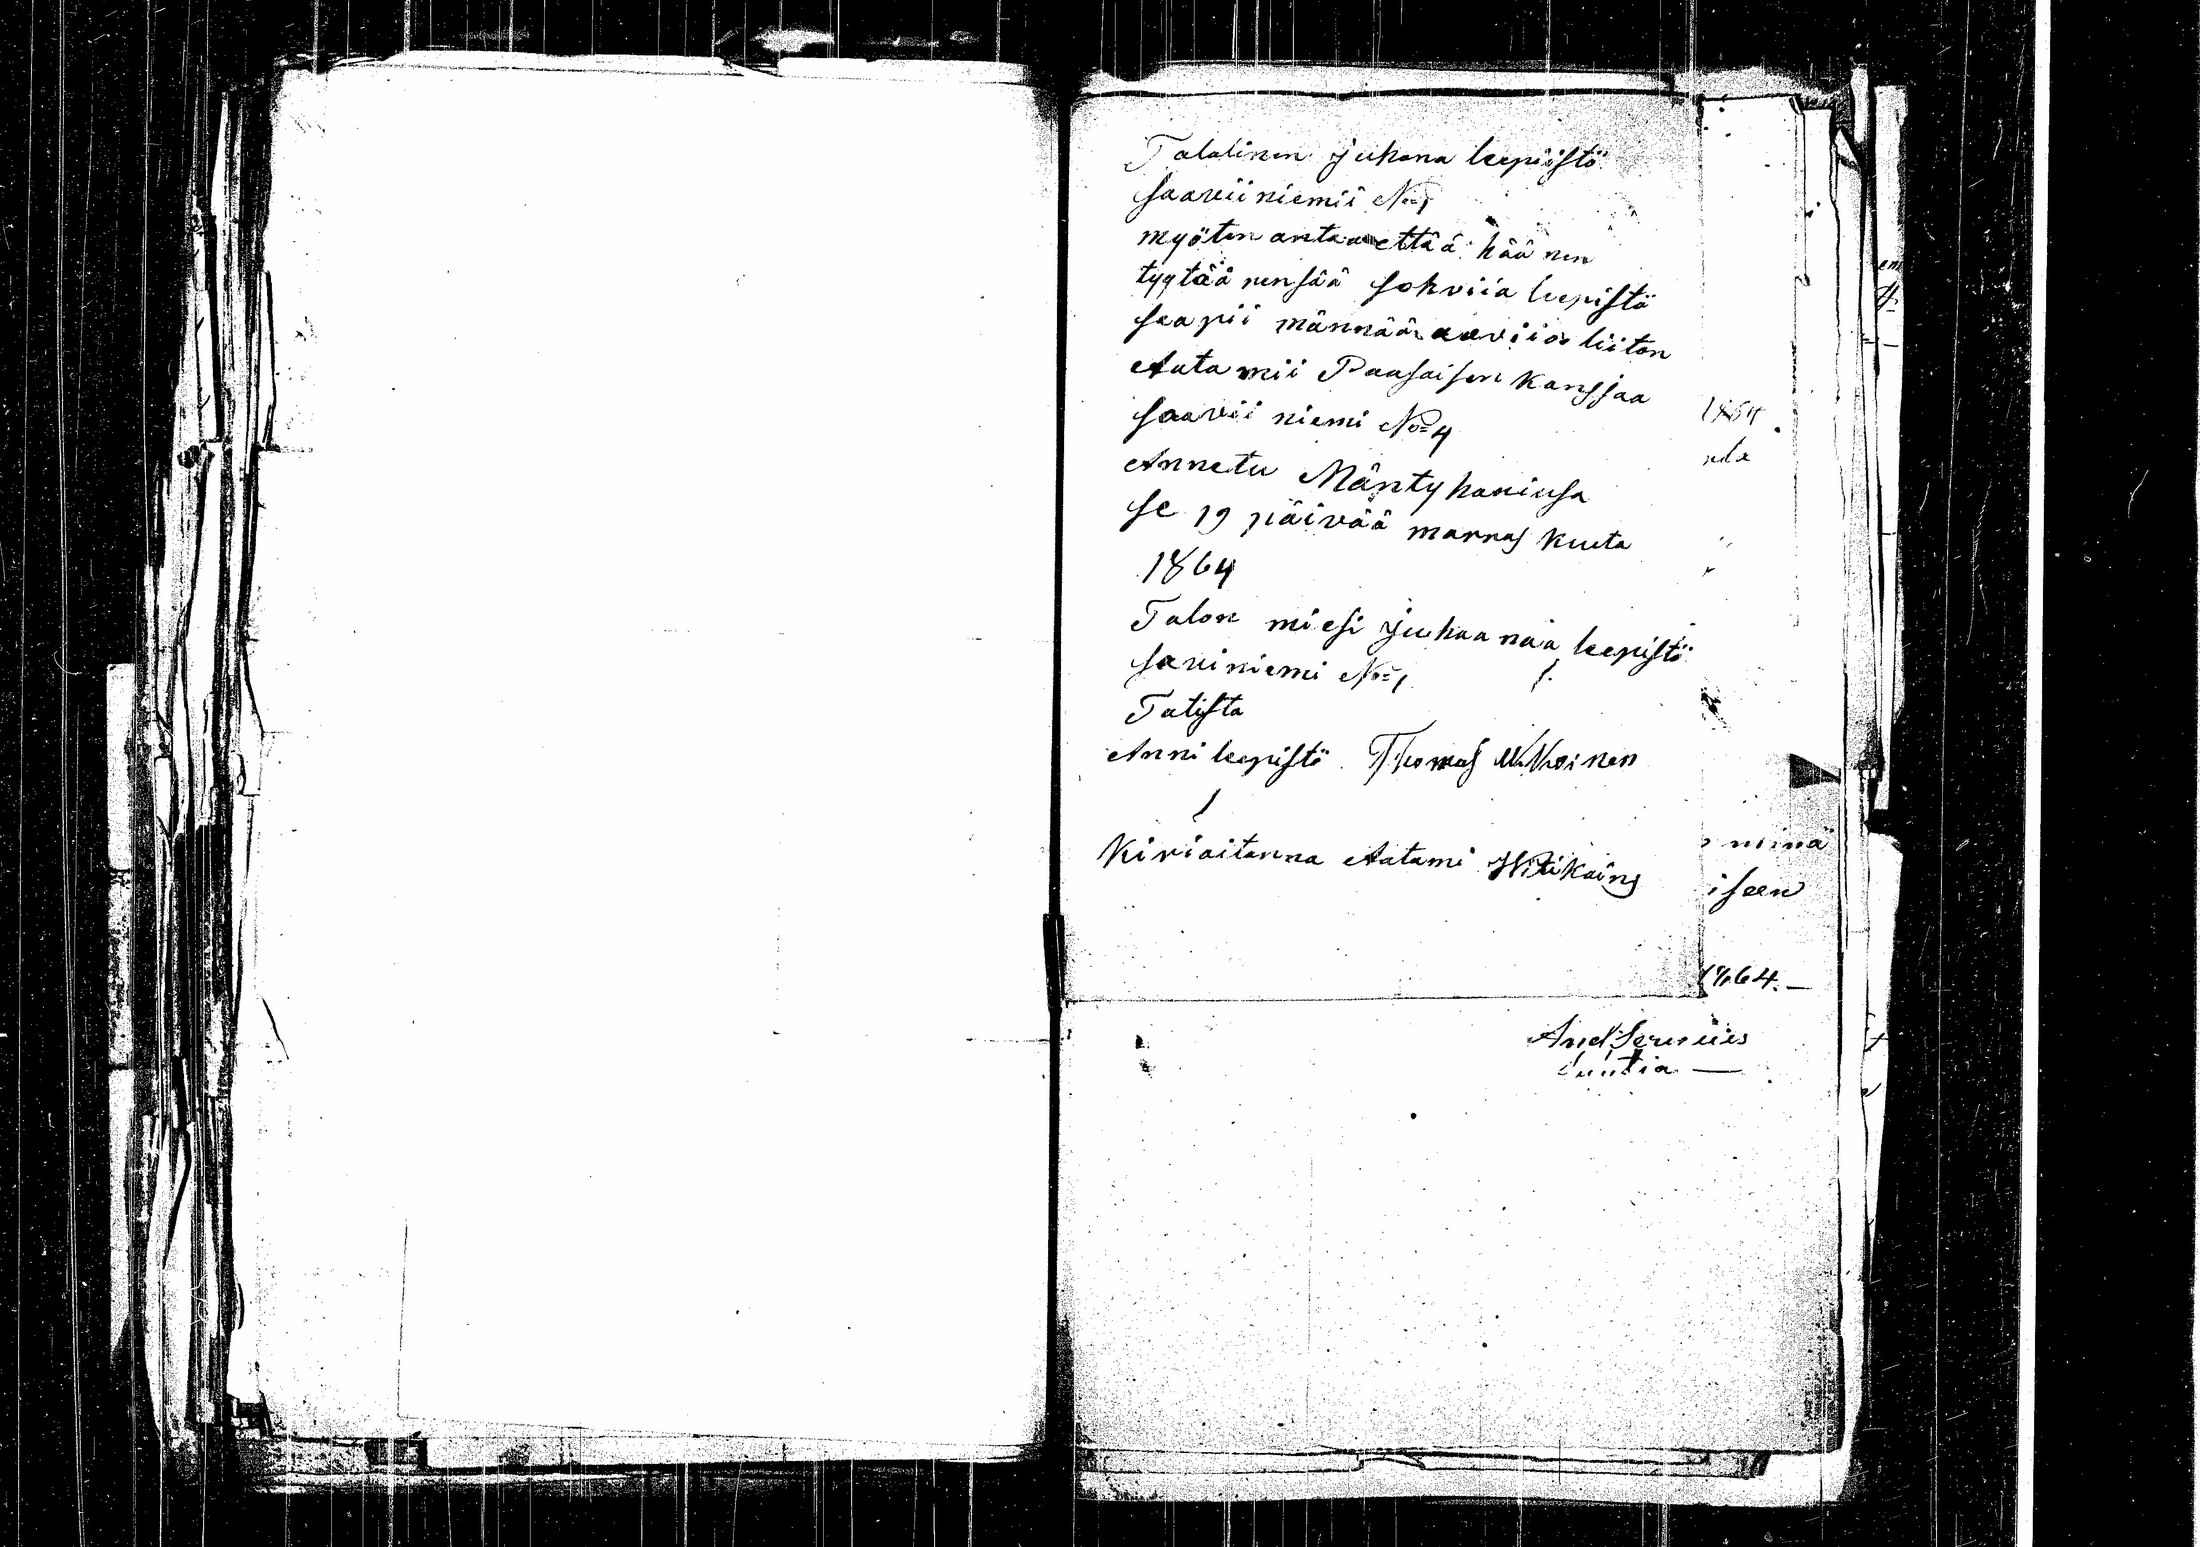 Talalinen juhana leepistö
saavii niemii No 1
myöten antaa että ä hää nen
tyytää nensää sohviia leepistö
saapii männää avviio liiton
Aatamii Paasaisen kanssaa
saavii niemi No 4
Annetu Mäntyhariusa
se 19 päivää marras kuuta
1864
Talon miesi juhaanaa leepistö
saviniemi No 1
Tatista
Anni leepistö Thomas
Kirioitanna Aatami
1864
minä
iseen
1864.
And